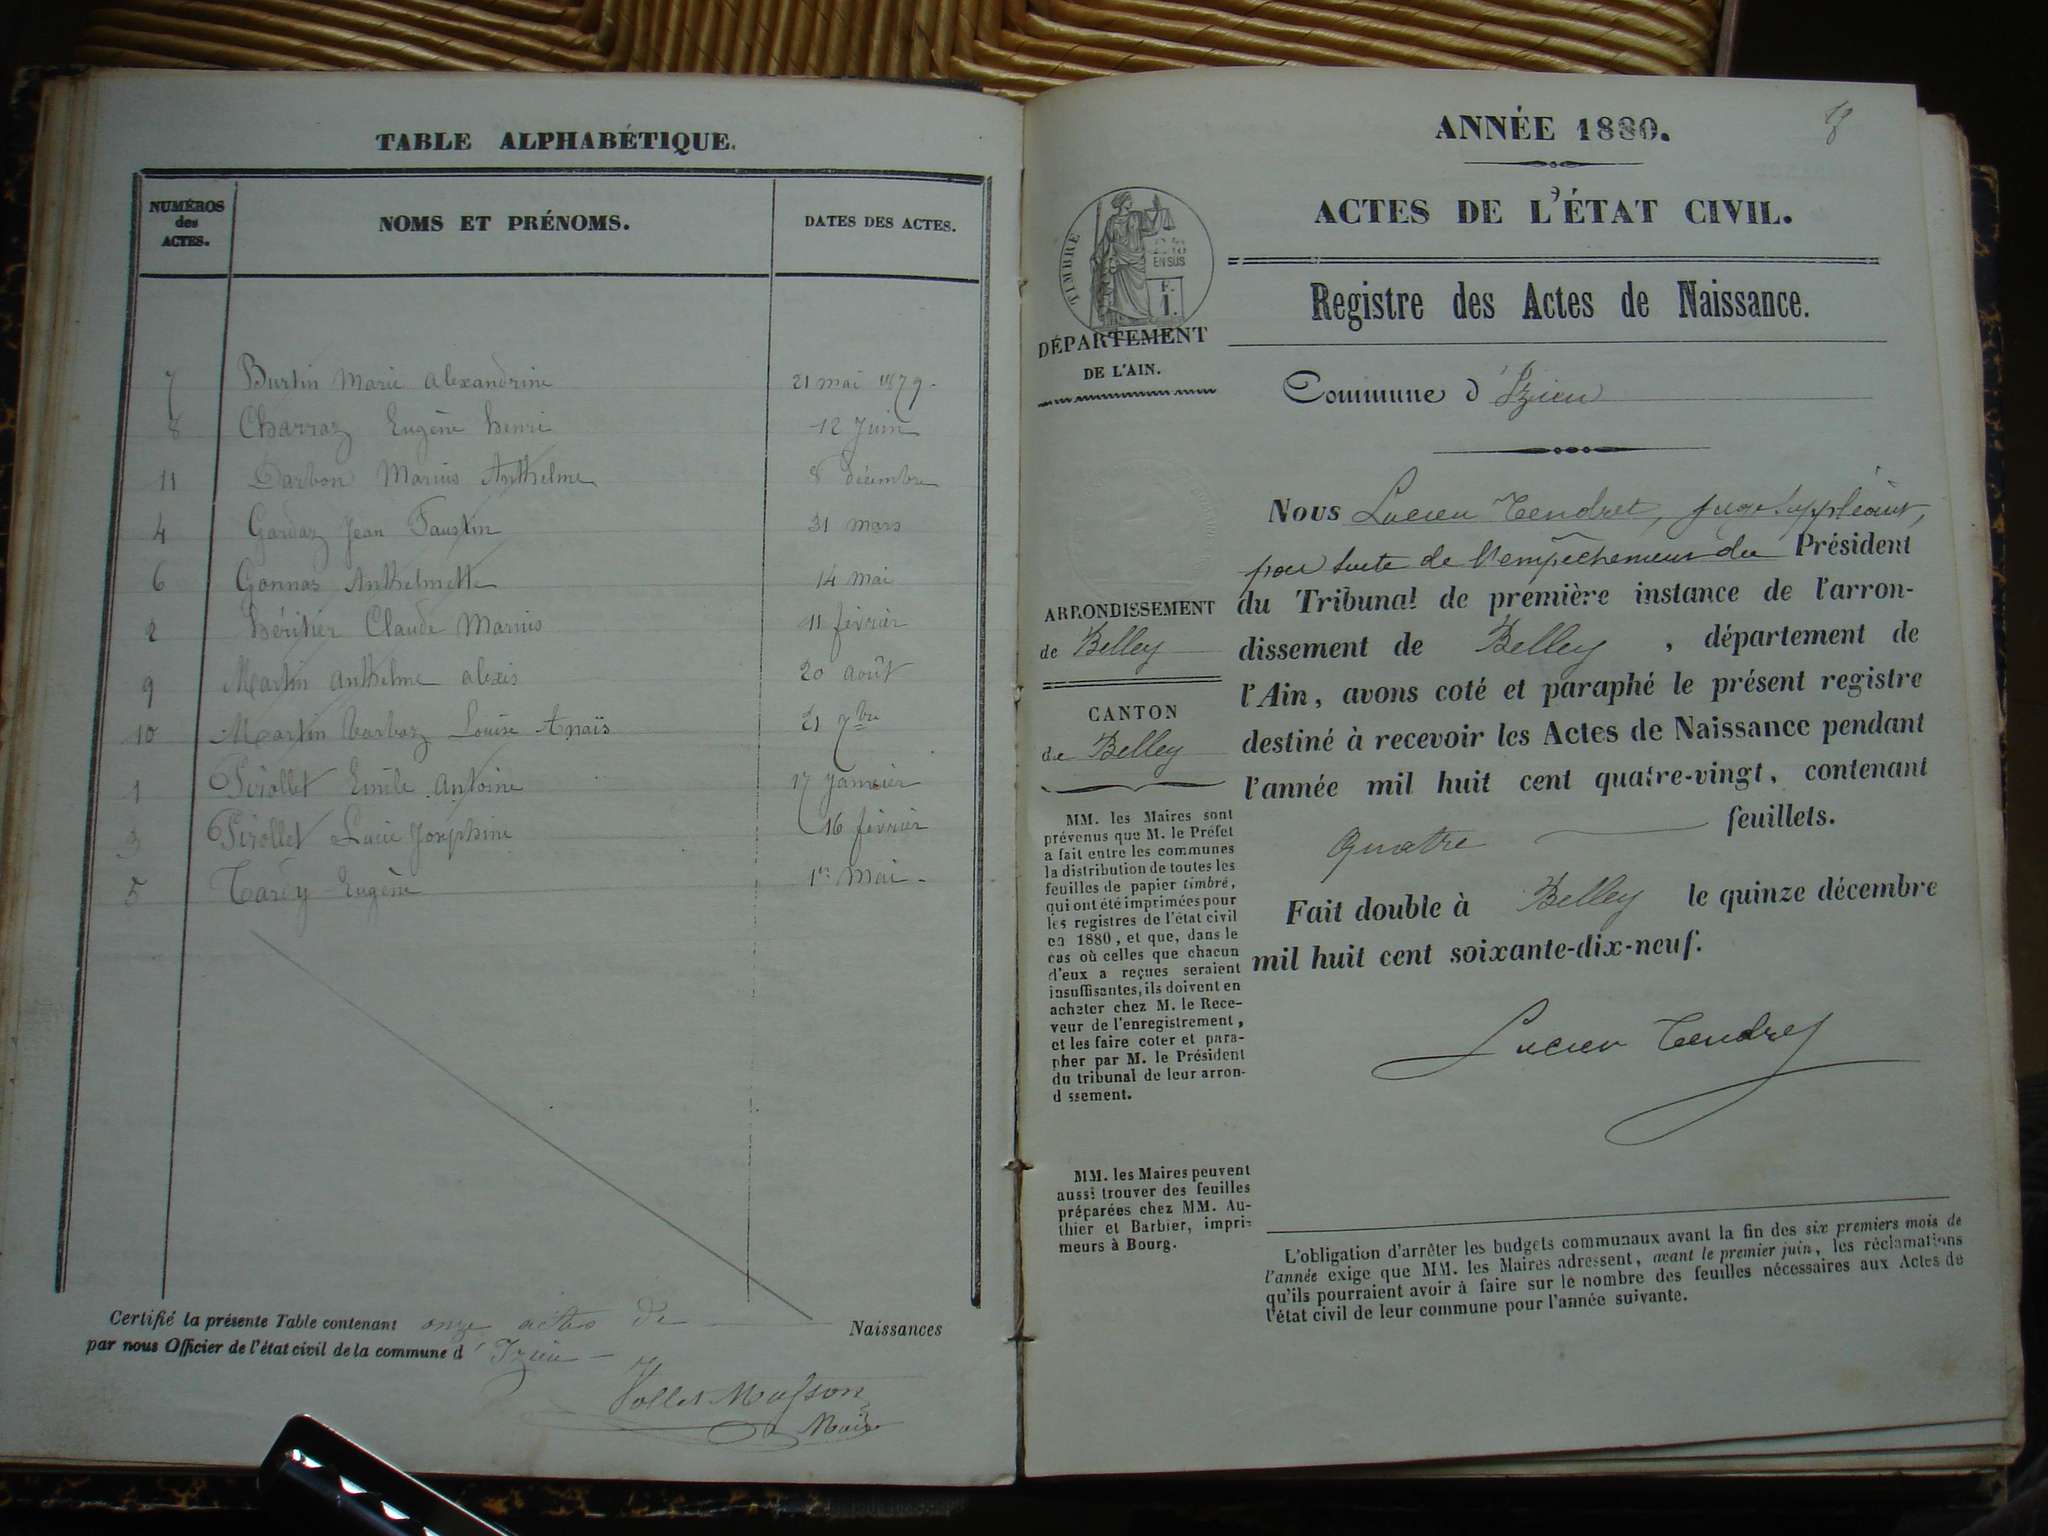 TABLE ALPHABÉTIQUE.
NUMÉROS des ACTES. NOMS ET PRÉNOMS. DATES DES ACTES.
7 Burtin Marie Alexandrine 21 mai 1879.
8 Charraz Eugène henri 12 Juin
11 Darbon Marius Anthelme 8 décembre
4 Gardaz Jean Faustin 31 mars
6 Gonnaz Anthelmette 14 mai
2 héritier Claude Marius 11 février
9 Martin Anthelme alexis 20 août
10 Martin barbaz Louise Anaïs 21 7bre
1 Pirollet Emile Antoine 17 Janvier
3 Pirollet Lucie Joséphine 16 février
5 Eugène 1er Mai.
Certifié la présente Table contenant onze actes de Naissances
par nous Officier de l'état civil de la commune d'Izieu
Maire
18
ANNÉE 1880.
ACTES DE L'ÉTAT CIVIL.
Registre des Actes de Naissance.
TIMBRE
EN SUS
F.
1.
DÉPARTEMENT
DE L'AIN.
Commune d'Izieu
ARRONDISSEMENT
de Belley
CANTON
de Belley
MM. les Maires sont
prévenus que M. le Préfet
a fait entre les communes
la distribution de toutes les
feuilles de papier timbré,
qui ont été imprimées pour
les registres de l'état civil
en 1880, et que, dans le
cas où celles que chacun
d'eux a reçues seraient
insuffisantes, ils doivent en
acheter chez M. le Rece-
veur de l'enregistrement,
et les faire coter et para-
pher par M. le Président
du tribunal de leur arron-
d ssement.
MM. les Maires peuvent
aussi trouver des feuilles
préparées chez MM. Au-
thier et Barbier, impri-
meurs à Bourg.
Nous Lucien Tendret, juge suppléant,
pour suite de l'empêchement du Président
du Tribunal de première instance de l'arron-
dissement de Belley, département de
l'Ain, avons coté et paraphé le présent registre
destiné à recevoir les Actes de Naissance pendant
l'année mil huit cent quatre-vingt, contenant
quatre feuillets.
Fait double à Belley le quinze décembre
mil huit cent soixante-dix-neuf.
Lucien Tendret
L'obligation d'arrêter les budgets communaux avant la fin des six premiers mois de
l'année exige que MM. les Maires adressent, avant le premier juin, les réclamations
qu'ils pourraient avoir à faire sur le nombre des feuilles nécessaires aux Actes de
l'état civil de leur commune pour l'année suivante.